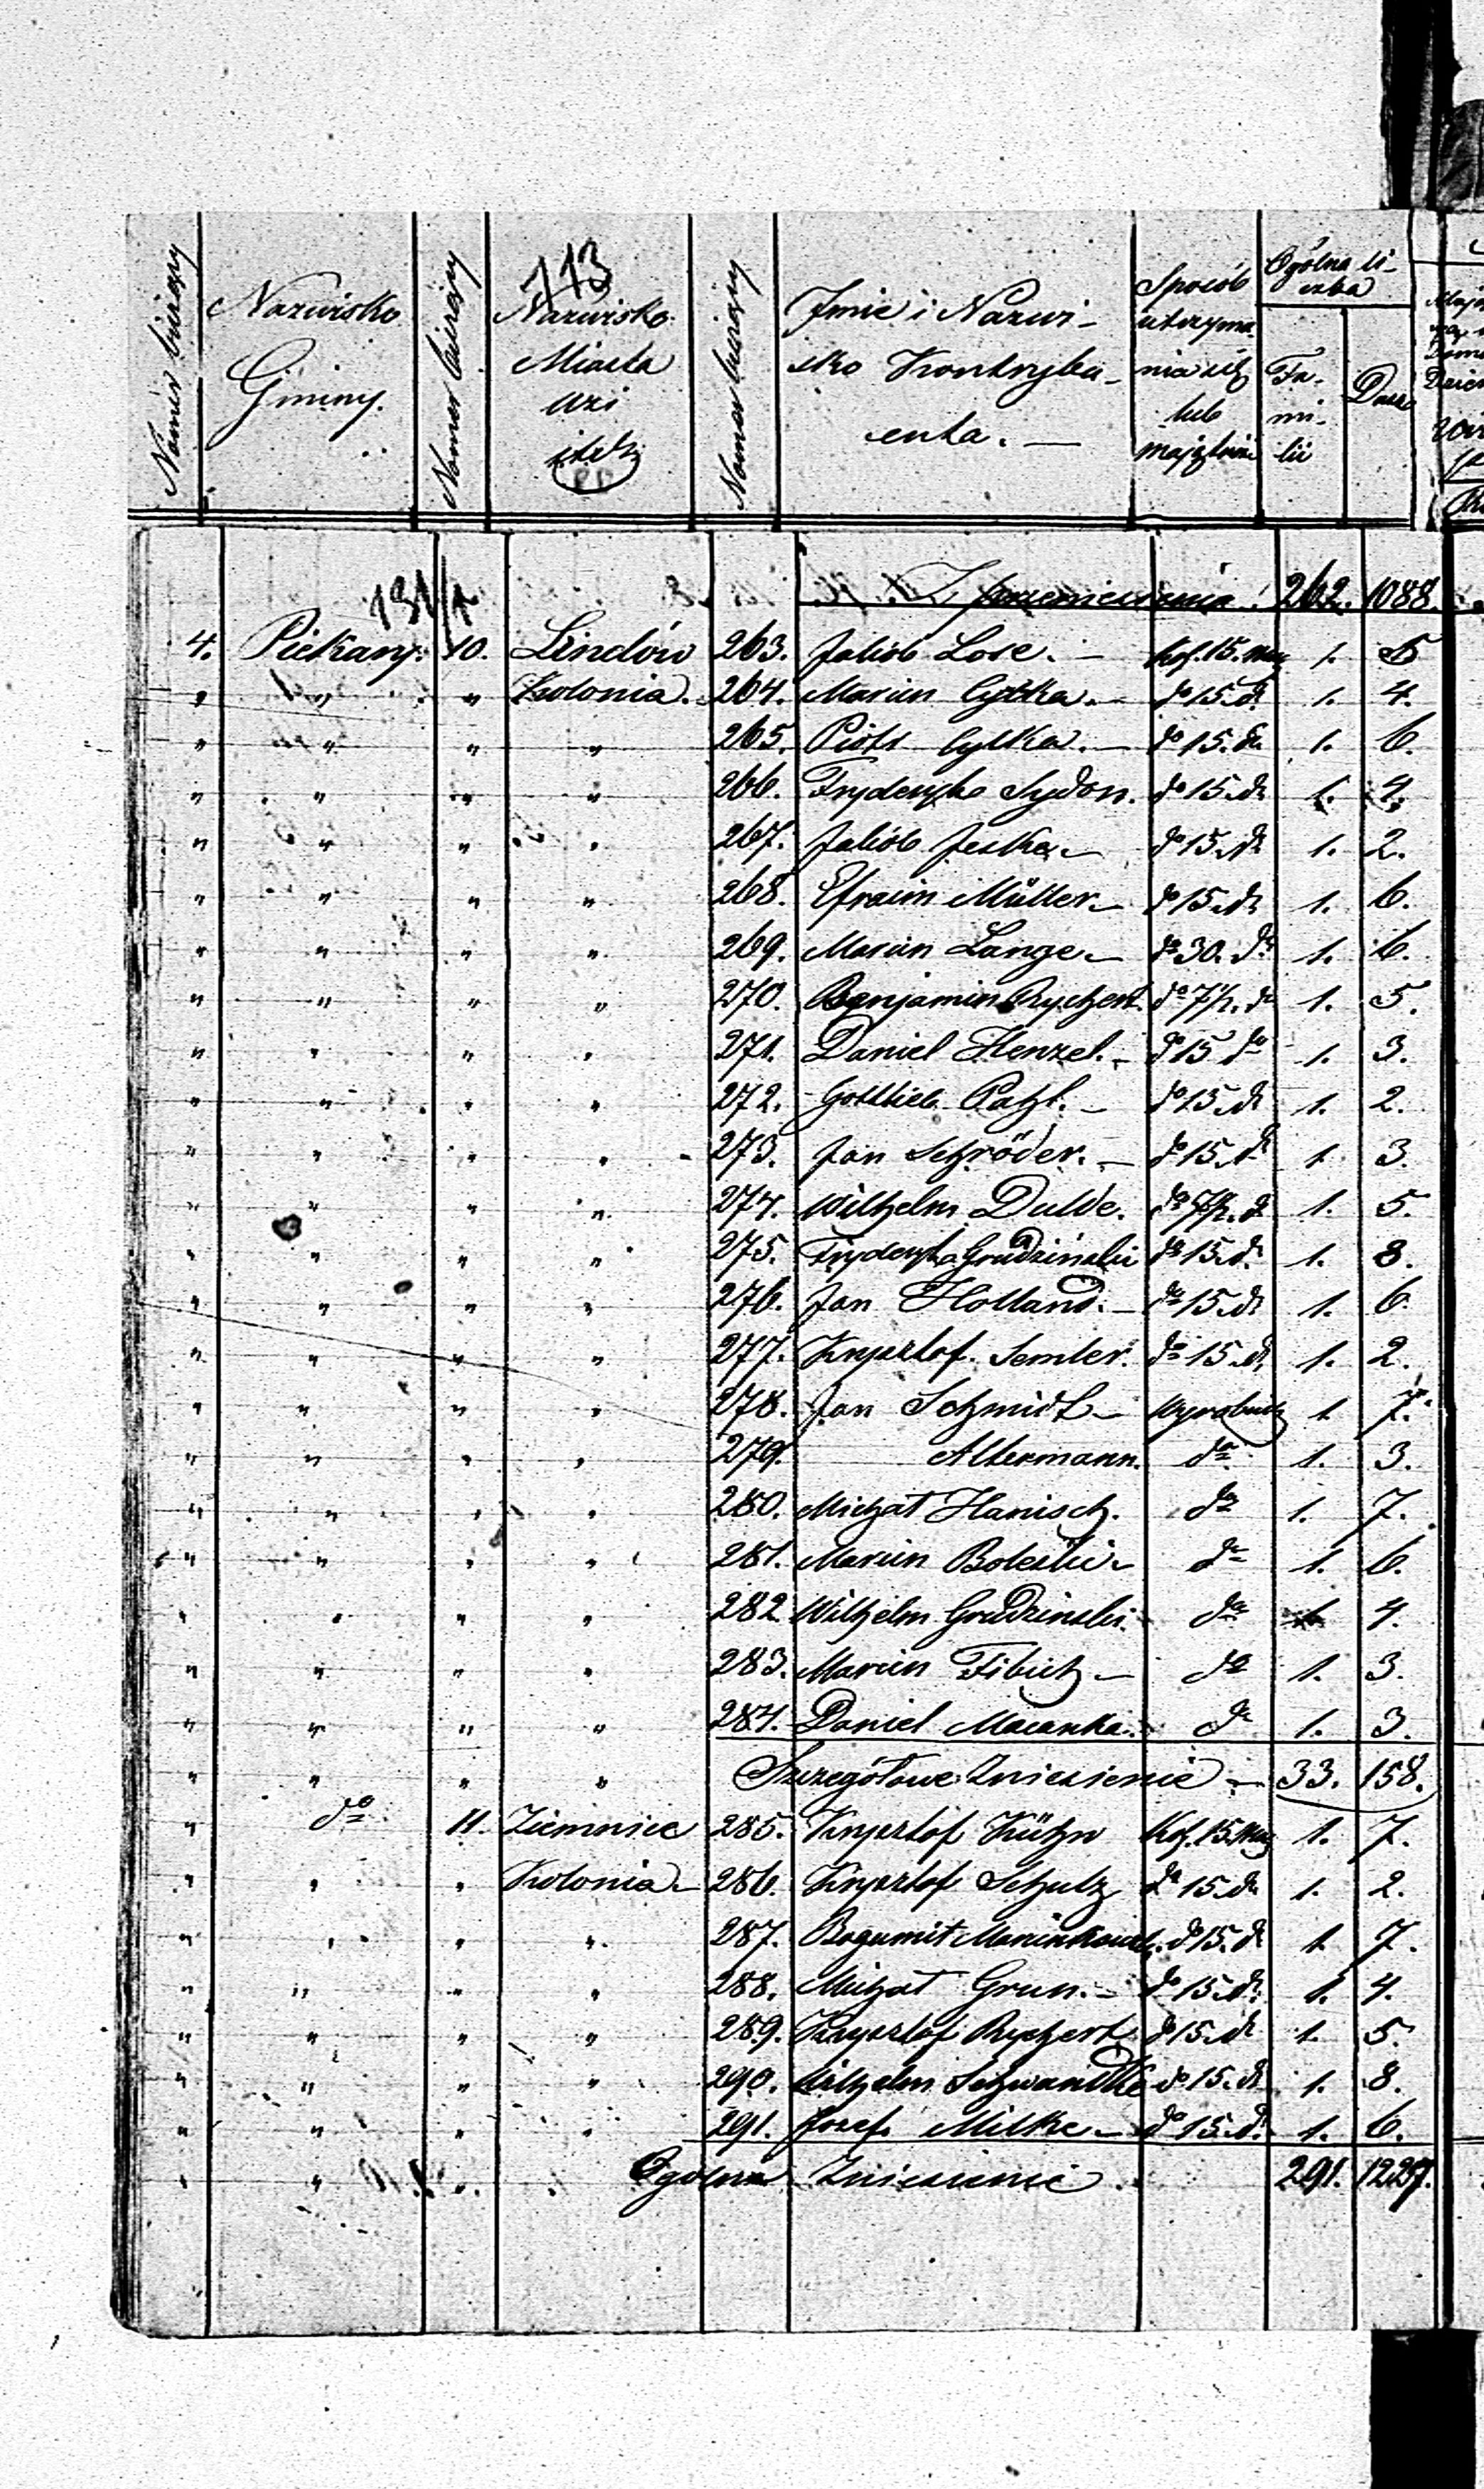 113
Numer bieżący
Nazwisko Gminy.
Numer bieżący
Nazwisko Miasta wsi itd.
Numer bieżący
Imie i Nazwisko Kontrybuenta. —
Sposób utrzymania się lub majątków
Ogólna liczba
Familii
Dusz
Z przeniesienia. 262. 1088.
4. Piekary. 10. Lindów 263. Jakób Lose. — Kol. 15. Mor 1. 5
" " " Kolonia. 264. Marcin Cylka. — do 15. do 1. 4.
" " " " 265. Piotr Cylka. — do 15. do 1. 6.
" " " " 266. Fryderyk Sydon. do 15. do 1. 4.
" " " " 267. Jakób Jeske — do 15. do 1. 2.
" " " " 268. Efraim Müller — do 15. do 1. 6.
" " " " 269. Marcin Lange — do 30. do 1. 6.
" " " " 270. Benjamin Rychert. do 7½. do 1. 5.
" " " " 271. Daniel Henzel. — do 15 do 1. 3.
" " " " 272. Gottlieb Patzl. — do 15. do 1. 2.
" " " " 273. Jan Schröder. — do 15. do 1. 3.
" " " " 274. Wilhelm Dulde. do 7½. do 1. 5.
" " " " 275. Fryderyk Grudziński do 15. do 1. 8.
" " " " 276. Jan Holland. — do 15. do 1. 6.
" " " " 277. Krysztof Semler. do 15. do 1. 2.
" " " " 278. Jan Schmidt — Wyrobnik 1. 7.
" " " " 279. Altermann. do 1. 3.
" " " " 280. Michał Hanisch. do 1. 7.
" " " " 281. Marcin Boleski — do 1. 6.
" " " " 282. Wilhelm Grudzinski. do 1. 4.
" " " " 283. Marcin Fibich — do 1. 3.
" " " " 284. Daniel Macanka. do 1. 3.
" " " " Szczegółowe Zniesienie — 33. 158.
" do 11. Ziemnice 285. Krysztof Kühn Kol. 15. Mor 1. 7.
" " " Kolonia — 286. Krysztof Schulz do 15. do 1. 2.
" " " " 287. Bogumił do 15. do 1. 7.
" " " " 288. Michał Grun. — do 15. do 1. 4.
" " " " 289. Krysztof Rychert do 15. do 1. 5.
" " " " 290. Wilhelm Schwandtke do 15. do 1. 8.
" " " " 291. Jozef Milke — do 15. do 1. 6.
" " " Ogólne Zniesienie. 291. 1227.